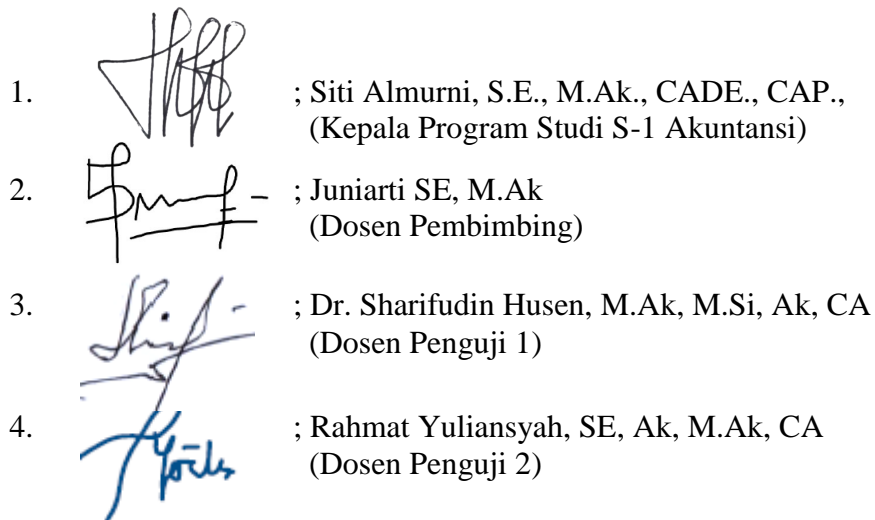 1. ; Siti Almurni, S.E., M.Ak., CADE., CAP.,
(Kepala Program Studi S-1 Akuntansi)
2. ; Juniarti SE, M.Ak
(Dosen Pembimbing)
3. ; Dr. Sharifudin Husen, M.Ak, M.Si, Ak, CA
(Dosen Penguji 1)
4. ; Rahmat Yuliansyah, SE, Ak, M.Ak, CA
(Dosen Penguji 2)